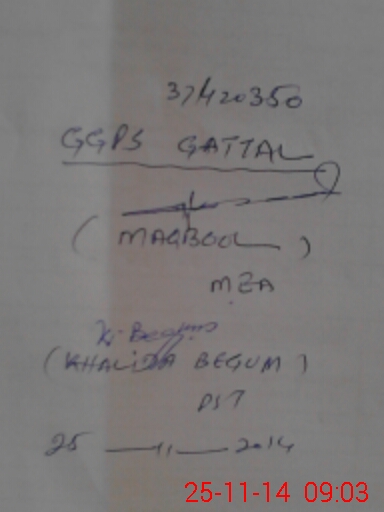 37420350
GGPS GATTAL
(MAQBOOL)
MEA
K. Begum
(KHALIDA BEGUM)
PST
25 — 11 — 2014
25-11-14 09:03